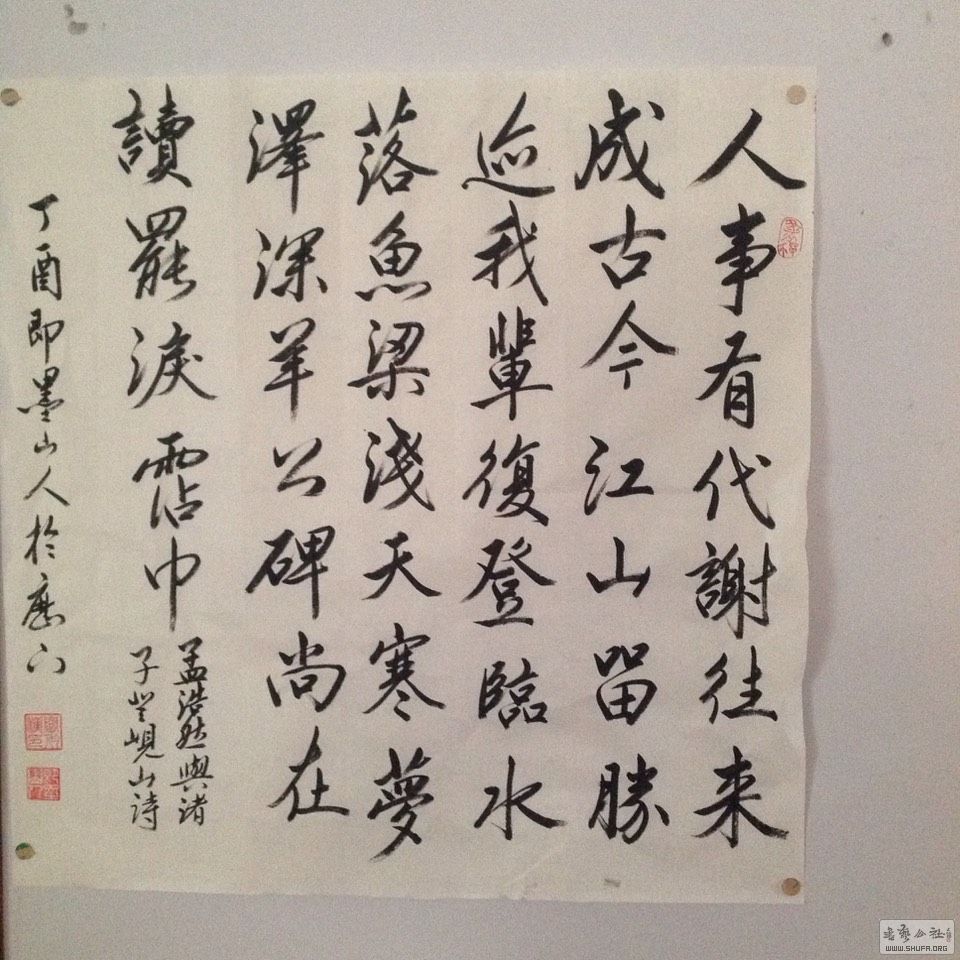 人事有代謝往来
成古今江山留勝
迹我輩復登臨水
落魚梁淺天寒夢
澤深羊公碑尚在
讀罷淚霑巾
孟浩然與諸
子登峴山詩
丁酉即墨山人於歷下
書藝公社
WWW.SHUFA.ORG